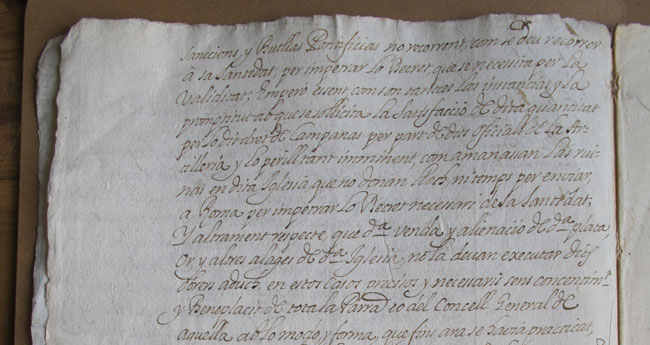 sanccions, y Butllas Pontificias no recorrent, com se deu recorrer
à sa Santedat, per impetrar lo Decret, que se necessita per la
validitat; Empero essent com son tantas las instancias, y sa
promptitut ab que se sollicita la satisfacció de dita quantitat
per lo dit dret de Campanas per part de dits officials de la Ar-
tilleria, y lo perill tant imminent, com amanassan las rui-
nas en dita Iglesia, que no donan lloch, ni temps per enviar
a Roma per impetrar lo Decret necessari de sa Santedat;
Y altrament respecte, que dᵃ venda, y alienació de dᵃ plata,
Or, y altres alages de dᵃ Iglesia, no la deuan executar dits
obrers aduch, en estos casos precisos, y necessaris sens consentimᵗ
y Beneplacit de tota la Parrᵃ o del Concell General de
aquella ab lo modo, y forma, que fins ara se ha practicat,